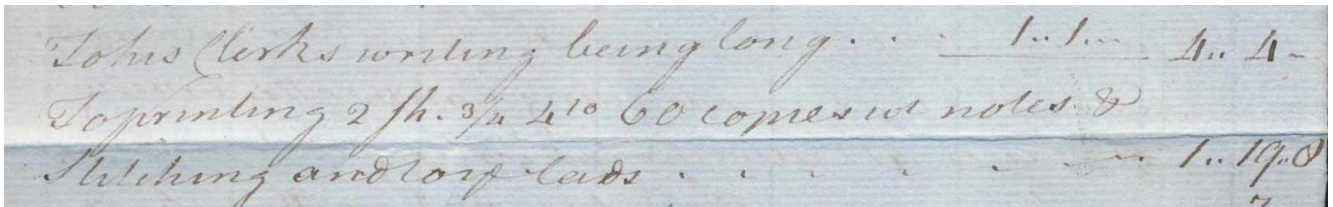 To his Clerks writing being long . . . 1..1.. 4.. 4-
To printing 2 sh. 3/4 4to 60 copies wt notes &
Stitching and lads . . . . . . . 1.. 19..8